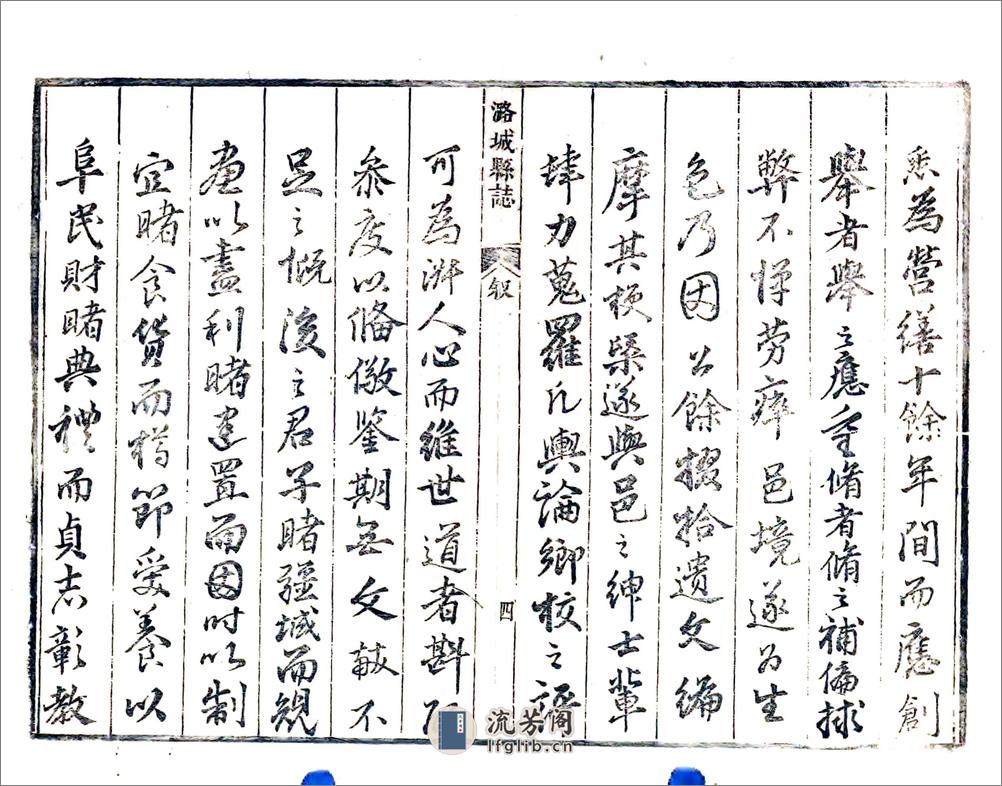 為營繕十餘年間而應創
舉者舉之應重脩者脩之補偏捄
弊不憚勞瘁邑境遂為生
色乃因公餘掇拾遺文編
摩其梗槩遂與邑之紳士輩
肆力蒐羅凡輿論鄉校之
潞城縣誌
叙
四
可為洴人心而維世道者斟
叅度以俻儆鑒期無文献不
足之慨後之君子睹疆域而規
畫以盡利睹建置而因時以制
宜睹食貨而撙節愛養以
阜民財睹典禮而貞志彰教
流芳阁
lfglib.cn